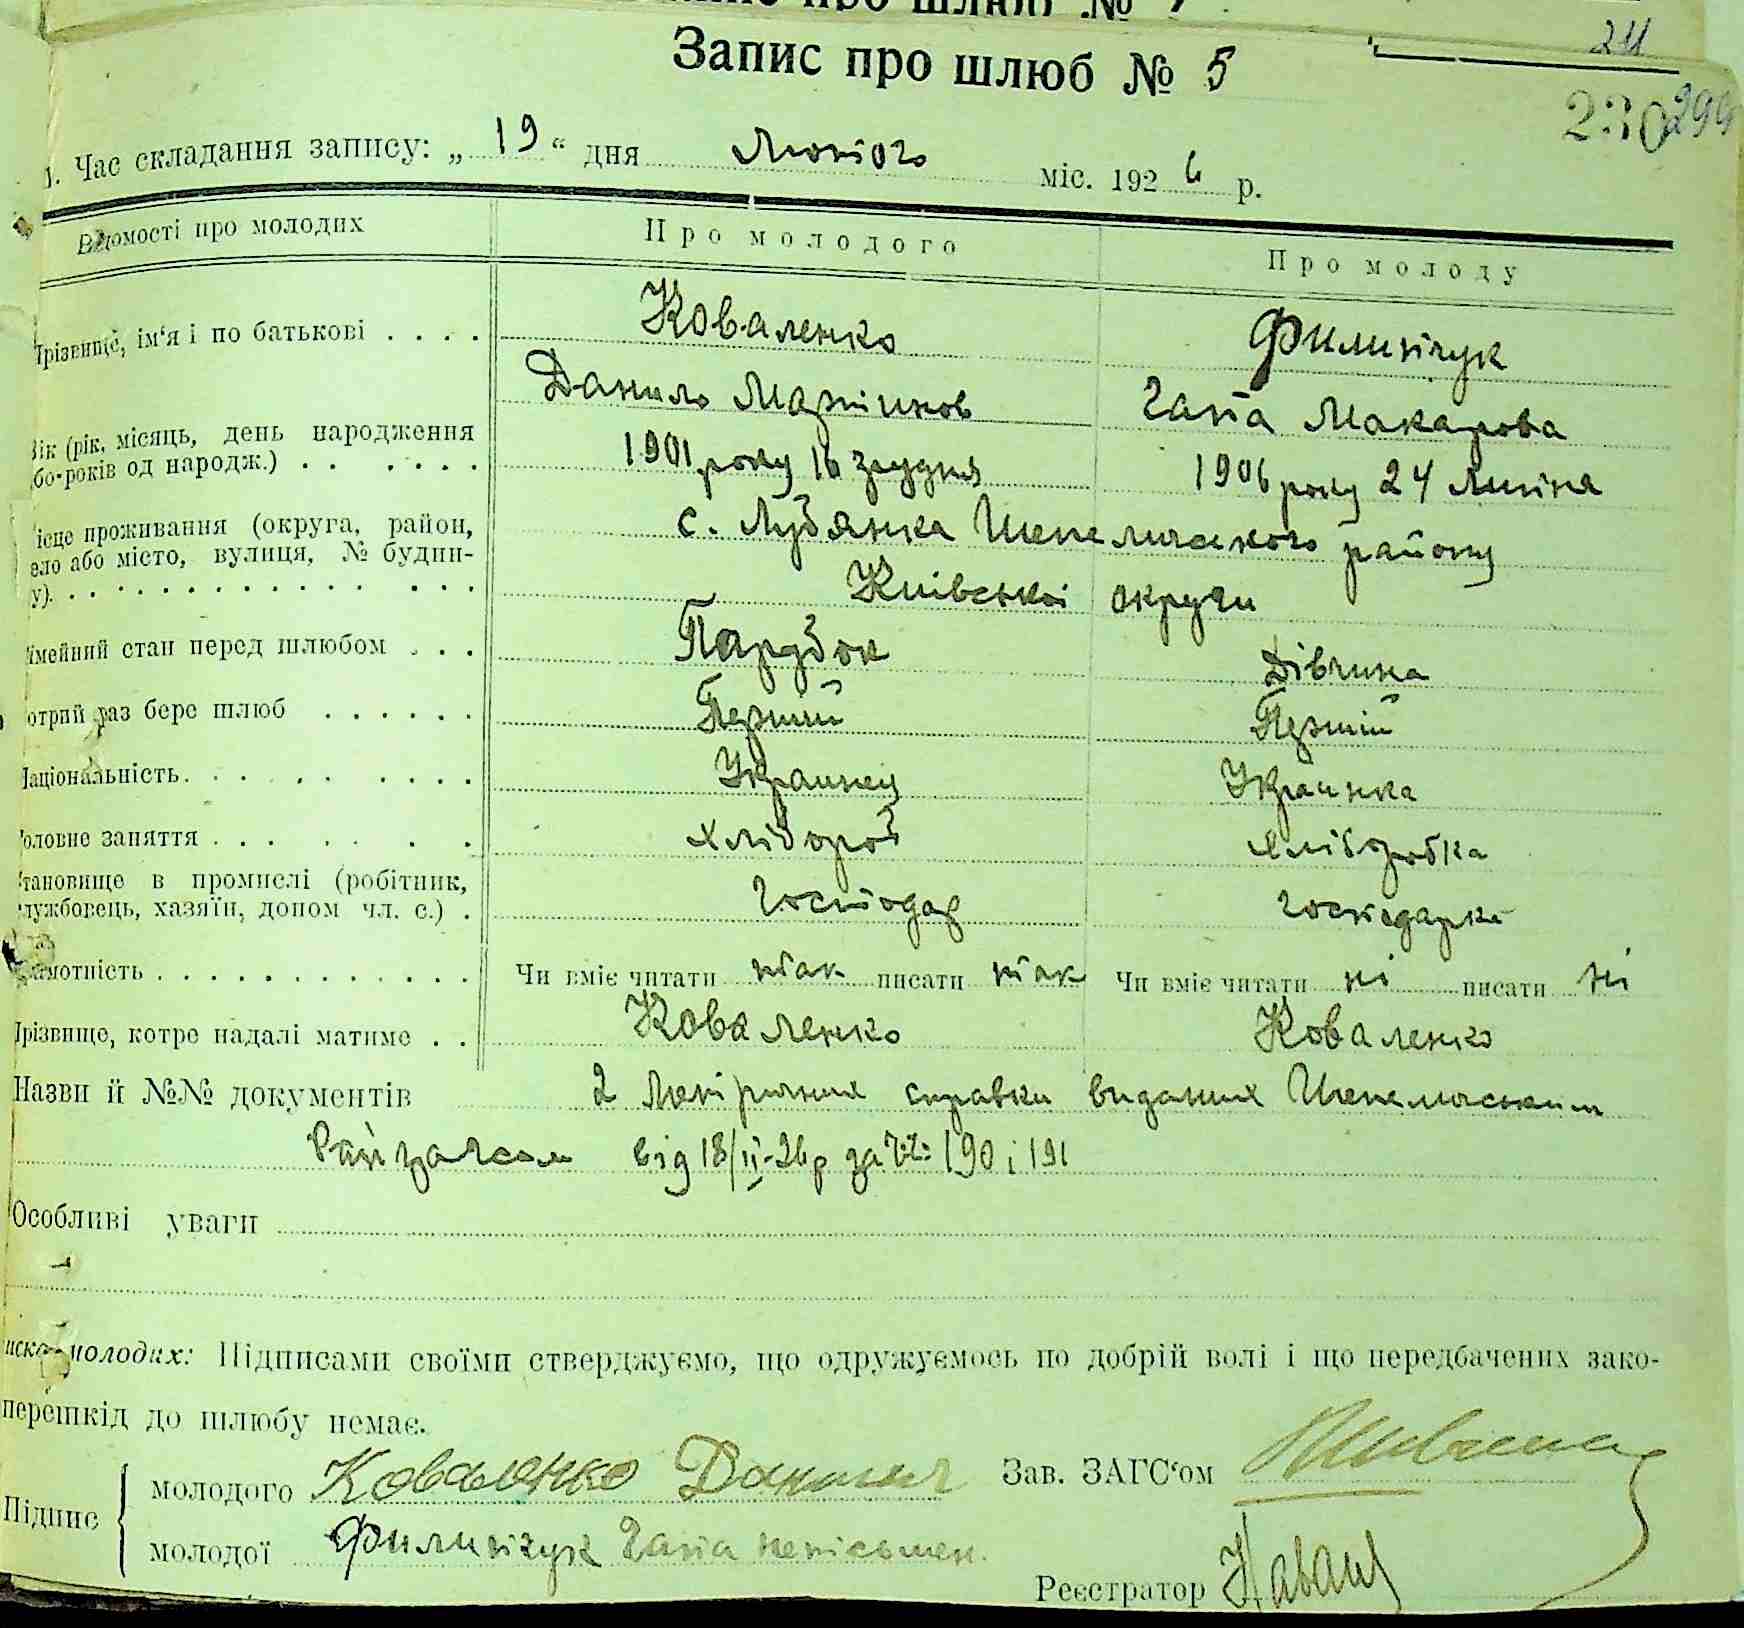 Запис про шлюб № 5
24
230 299
1. Час складання запису: „ 19 “ дня Лютого міс. 192 6 р.
Відомості про молодих Про молодого Про молоду
Прізвище, ім‘я і по батькові . . . . Коваленко Филипчук
Данило Мартинов Гапа Макарова
Вік (рік, місяць, день народження
або-років од народж.) . . . . . . 1901 року 16 грудня 1906 року 24 Липня
ісце проживання (округа, район, с. Луб'янка Шепеличського району
ело або місто, вулиця, № будин-
у). . . . . . . . . . . . . . . Київської округи
імейний стан перед шлюбом . . . Парубок Дівчина
отрий раз бере шлюб . . . . . . Перший Перший
Національність. . . . . . . . . Украинец Украинка
оловне заняття . . . . . . Хлібороб Хліборобка
тановище в промислі (робітник,
лужбовець, хазяїн, допом чл. с.) . Господар господарка
амотність . . . . . . . . . . . . Чи вміє читати так писати так Чи вміє читати ні писати ні
Прізвище, котре надалі матиме . . Коваленко Коваленко
Назви й №№ документів 2 Метричних справки виданих Шепеличським
Райзагсом від 18/II-26р за №№ 190 і 191
Особливі уваги
иска молодих: Підписами своїми стверджуємо, що одружуємось по добрій волі і що передбачених зако-
перешкід до шлюбу немає.
Підпис молодого Коваленко Данило Зав. ЗАГС‘ом
молодої Филипчук Гапа неписьмен.
Реєстратор